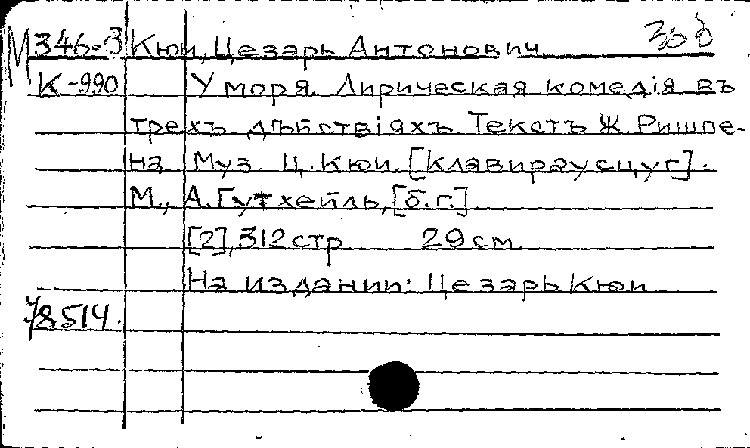 М 346-3 Кюи, Цезарь Антонович
К-990 У моря. Лирическая комедія въ
трехъ дѣйствіяхъ. Текстъ Ж. Ришпе-
на. Муз. Ц. Кюи. [Клавираусцуг].
М., А. Гутхейль, [б.г.]
[2], 312 стр. 29 см.
На издании: Цезарь Кюи
78514.